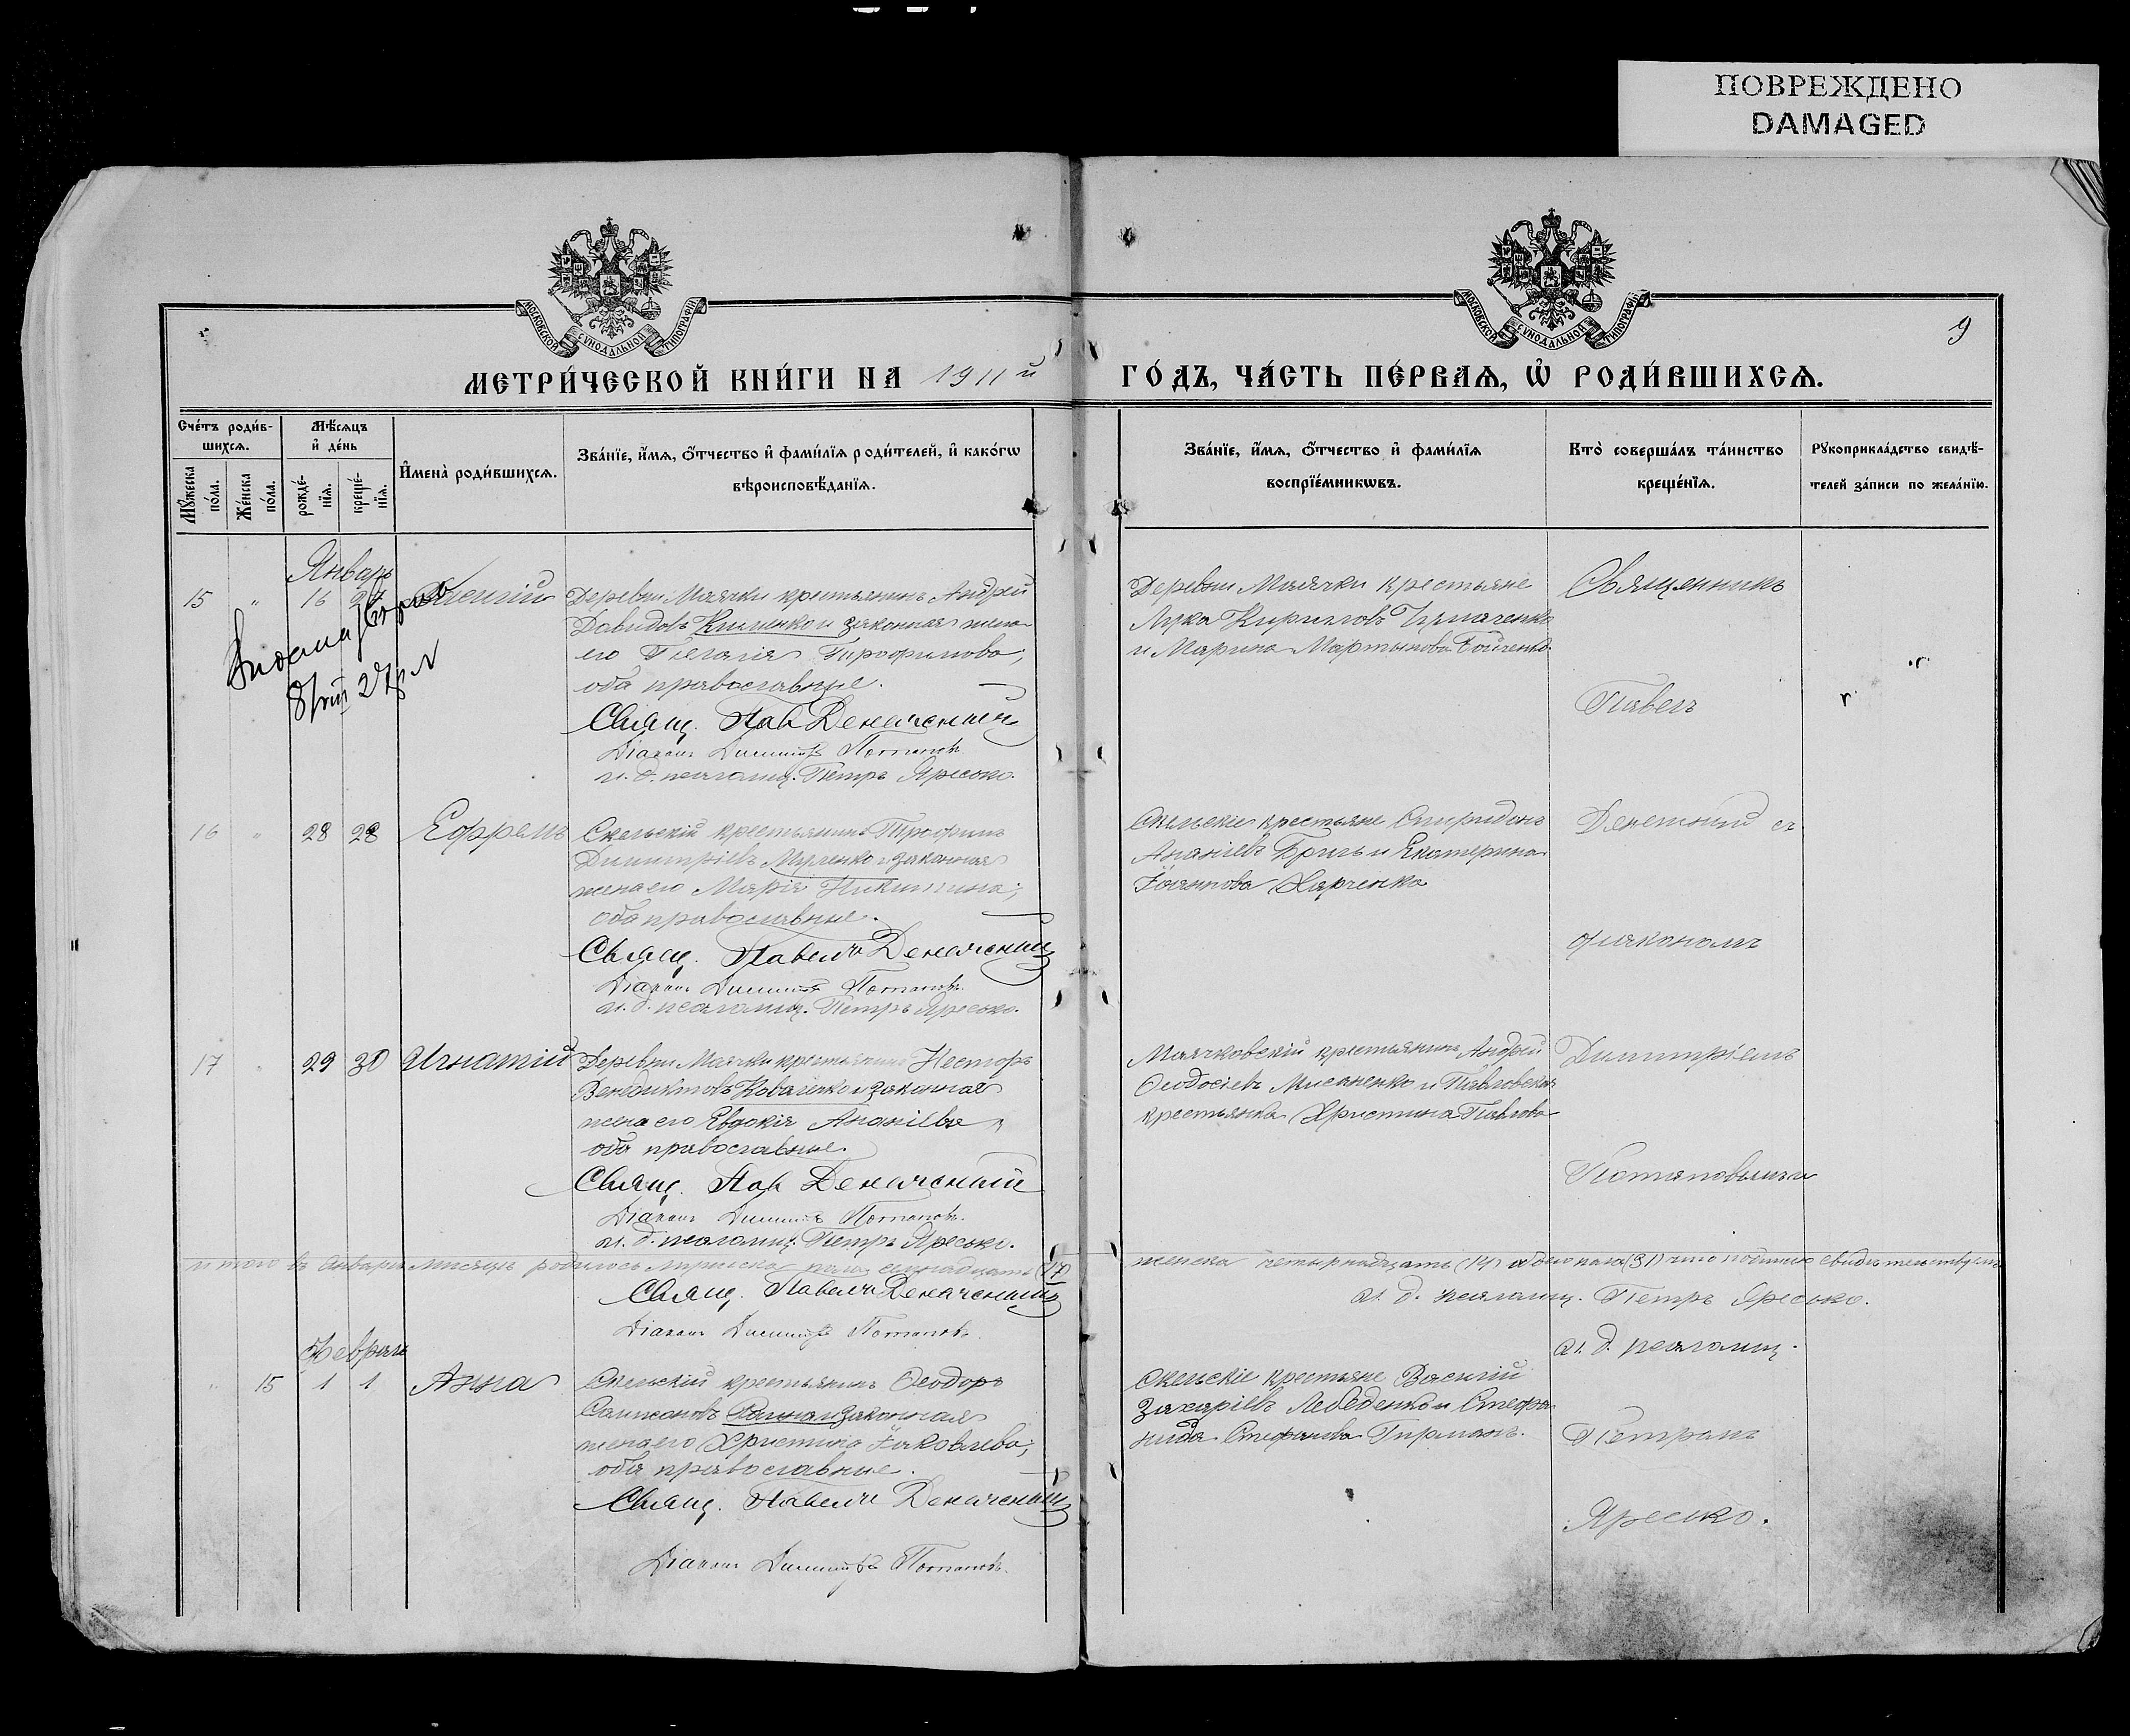 ПОВРЕЖДЕНО
DAMAGED
МОСКОВСКОЙ СѴНОДАЛЬНОЙ ТИПОГРАФІИ
МОСКОВСКОЙ СѴНОДАЛЬНОЙ ТИПОГРАФІИ
9
МЕТРИ́ЧЕСКОЙ КНИ́ГИ НА 1911й
ГО́ДЪ, ЧА́СТЬ ПЕ́РВАѦ, Ѡ҆ РОДИ́ВШИХСѦ.
Сче́тъ роди́в-
шихсѧ.
Мꙋ́жеска по́ла.
Же́нска по́ла.
Мѣ́сѧцъ
и҆ де́нь
рожде́-
нїѧ.
креще́-
нїѧ.
И҆мена̀ роди́вшихсѧ.
Зва́нїе, и҆́мѧ, ѻ҆́тчество и҆ фами́лїѧ роди́телей, и҆ како́гѡ
вѣроисповѣ́данїѧ.
Зва́нїе, и҆́мѧ, ѻ҆́тчество и҆ фами́лїѧ
воспрїе́мникѡвъ.
Кто̀ соверша́лъ та́инство
креще́нїѧ.
Рꙋкоприкла́дство свидѣ́-
телей за́писи по жела́нїю.
Январь
15 " 16
Деревни Маячки крестьянинъ Андрей
Давидовъ Клименко и законная жена
его Пелагія Трофимова,
оба православные.
Свящ. Пав Деначскій
Діаконъ Димитрій Потаповъ
и. д. псаломщ. Петръ Яресько.
Деревни Маячки крестьяне
Лука Кирилловъ
и Марина Мартынова
Священникъ
Павелъ
16 " 28 28 Ефремъ
Скельскій крестьянинъ Трофимъ
Димитріевъ и законная
жена его Марія Никитина;
оба православные.
Свящ. Павелъ Деначскій
Діаконъ Димитрій Потаповъ.
и. д. псаломщ. Петръ Яресько.
Скельскіе крестьяне Спиридонъ
Ананіевъ Бригъ и Екатерина
Іоаннова Харченко
съ
діакономъ
17 " 29 30 Игнатій
Деревни Маячки крестьянинъ Несторъ
Венедиктовъ Коваленко и законная
жена его Евдокія Ананіева,
оба православные.
Свящ. Пав Деначскій
Діаконъ Димитрій Потаповъ.
и. д. псаломщ. Петръ Яресько.
Маячковскій крестьянинъ Андрей
Ѳеодосіевъ и Павловская
крестьянка Христина Павлова
Димитріемъ
Потаповымъ и
Итого въ Январѣ мѣсяцѣ родилось мужеска пола семнадцать (17)
женска четырнадцать (14) обоего пола (31) что подписью свидѣтельствуемъ
Свящ. Павелъ Деначскій
и. д. псаломщ. Петръ Яресько.
Діаконъ Димитрій Потаповъ.
и. д. псаломщ.
Февраль
" 15 1 1 Анна
Скельскій крестьянинъ Ѳеодоръ
Сампсоновъ и законная
жена его Христина Іаковлева;
оба православные.
Свящ. Павелъ Деначскій
Діаконъ Димитрій Потаповъ.
Скельскіе крестьяне Василій
Захаріевъ Лебеденко и Стефа-
нида Стефанова Гирманъ.
Петромъ
Яресько.